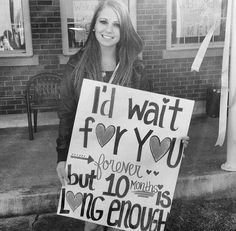 I'd wait
for you
forever
but 10 months is
long enough